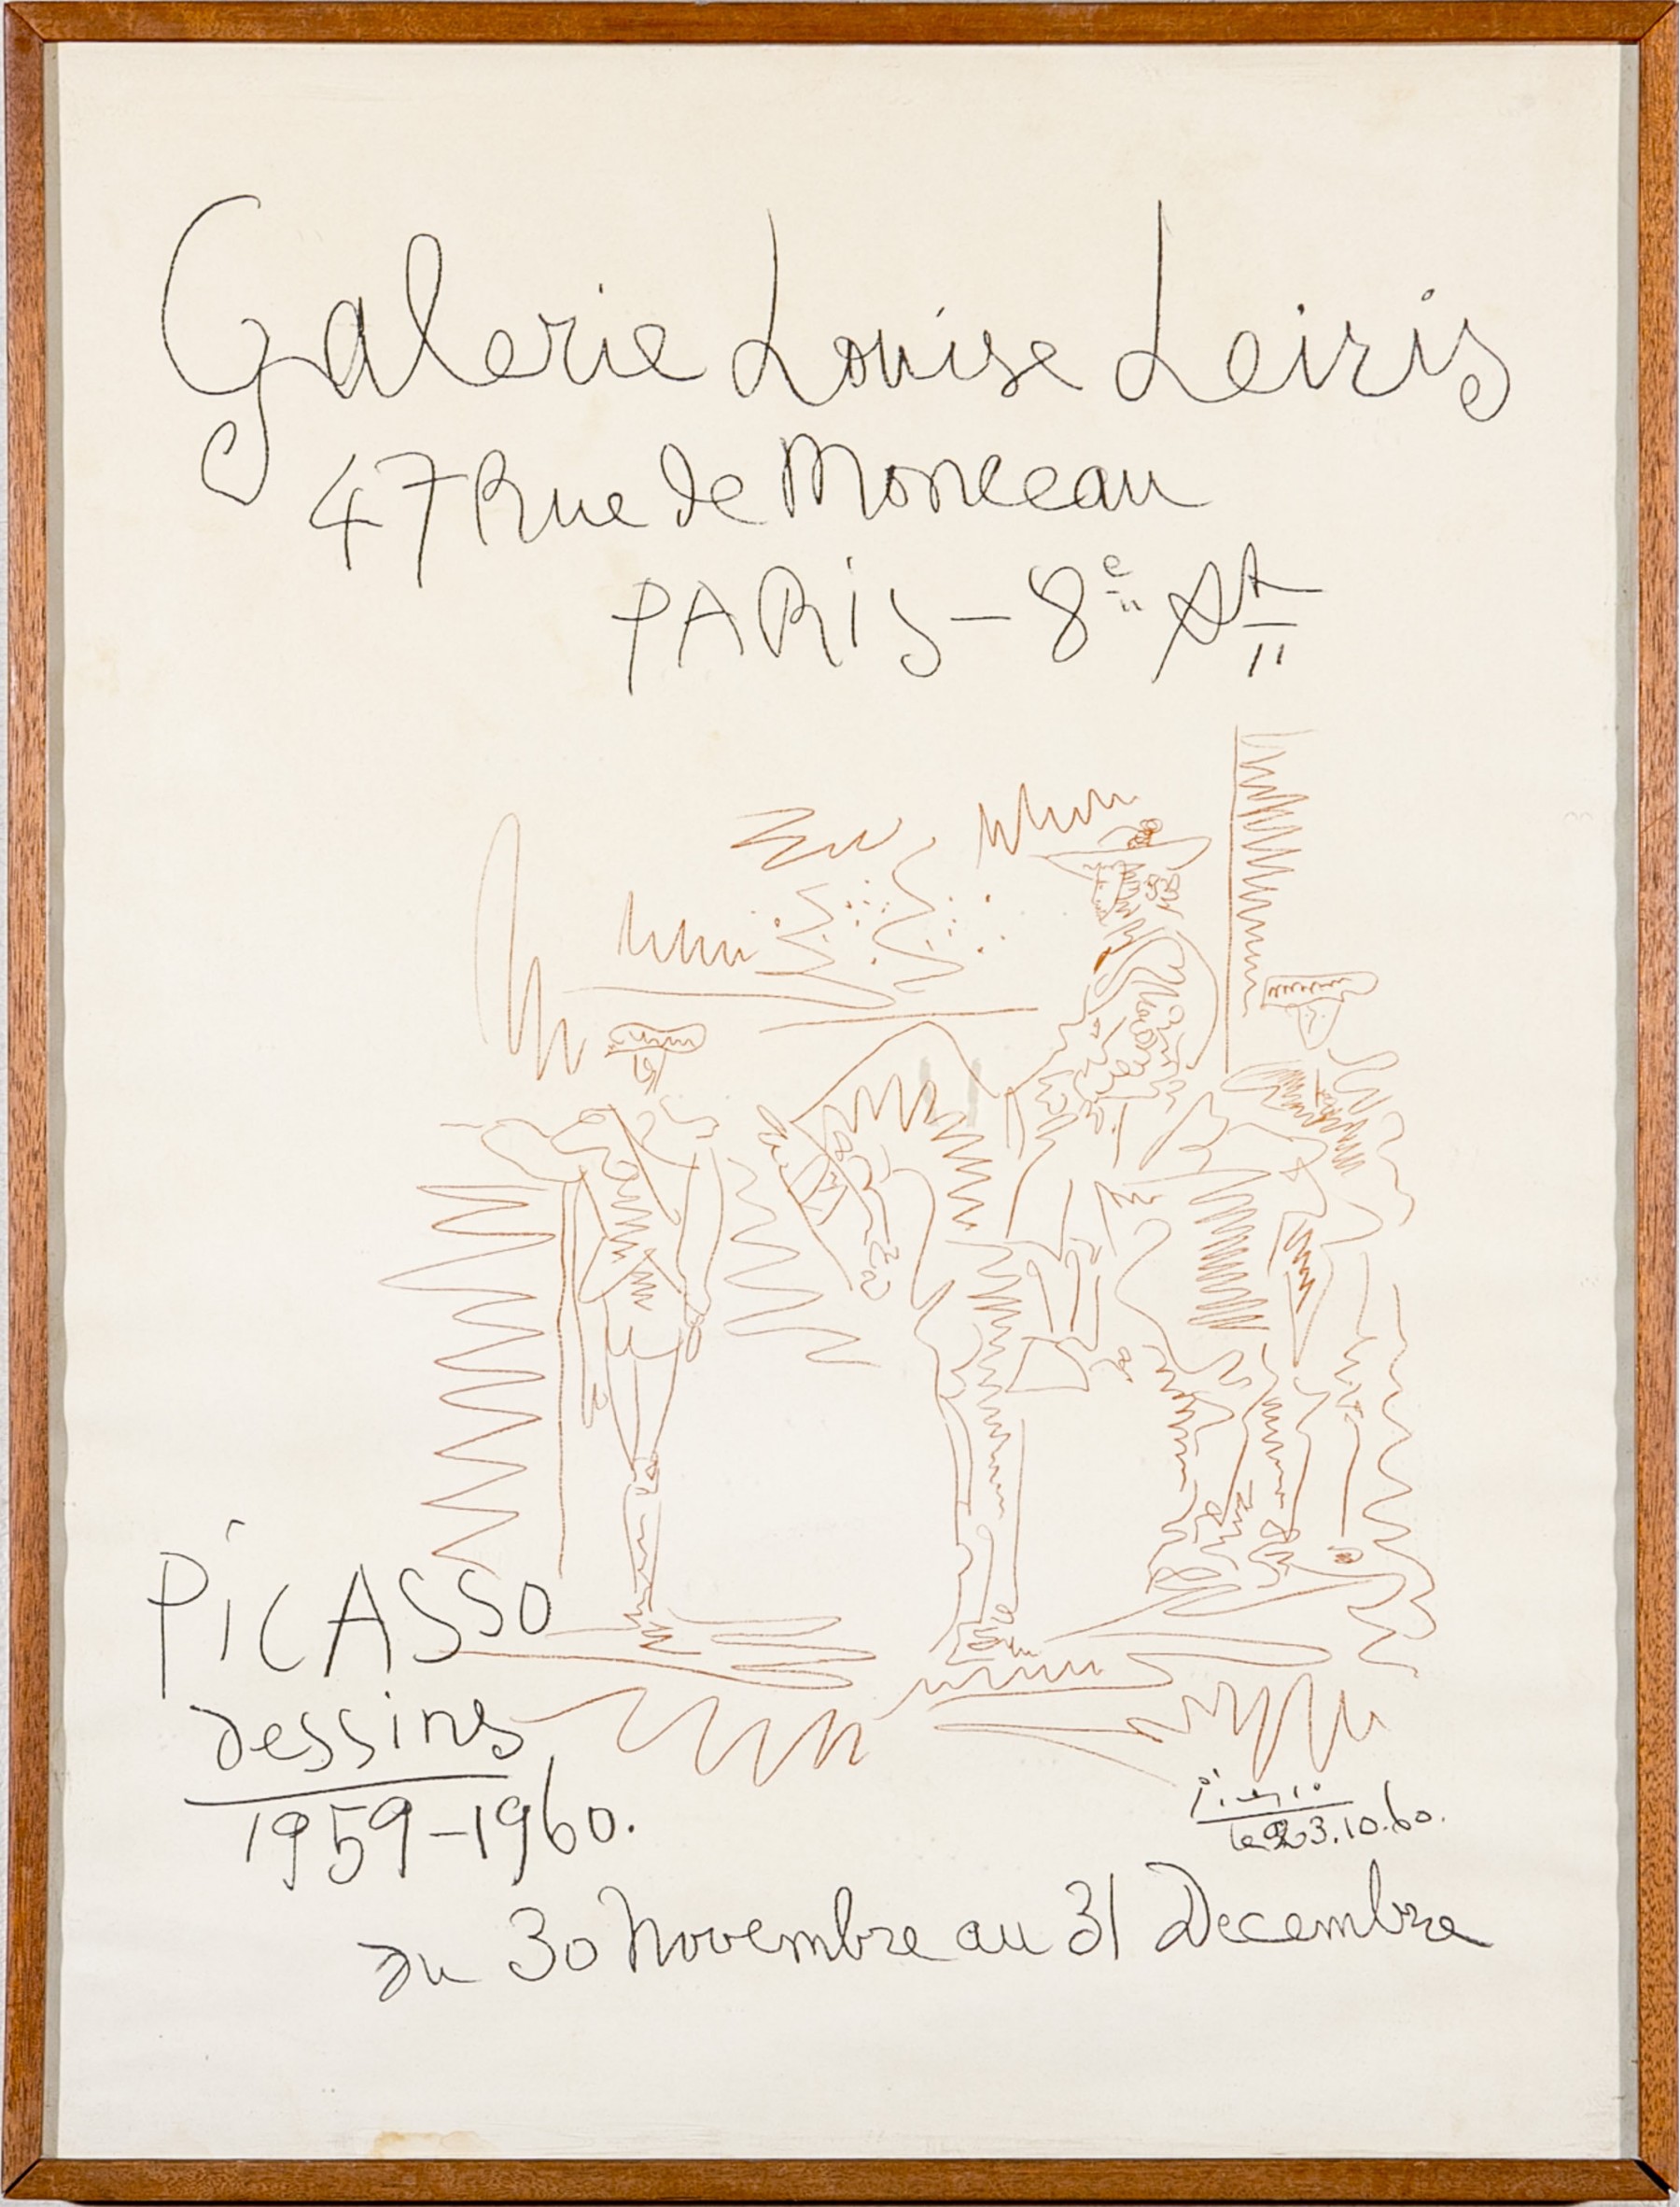 Galerie Louise Leiris
47 Rue de Monceau
PARIS - 8e Art
PiCASSO
dessins
1959-1960.
le 23.10.60.
du 30 Novembre au 31 Decembre